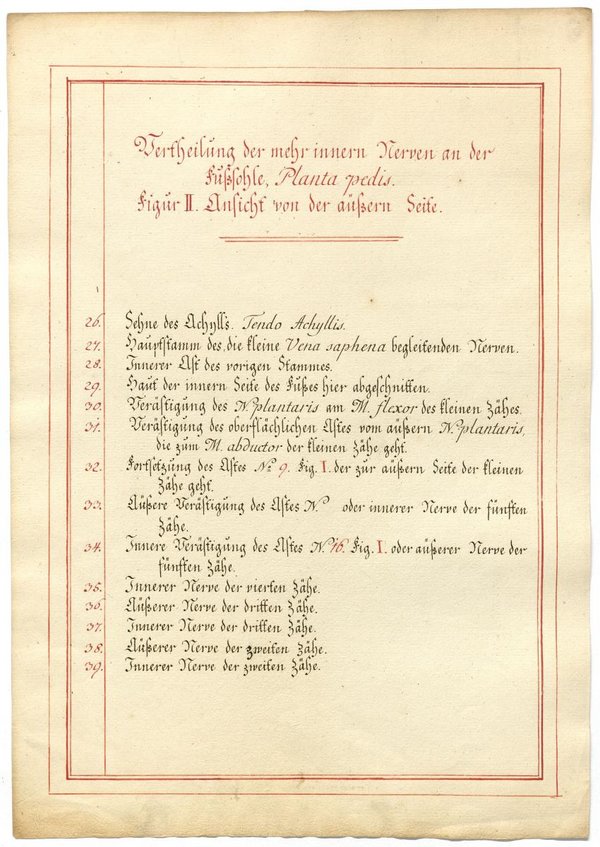 Vertheilung der mehr innern Nerven an der
Fußsohle, Planta pedis.
Figur II. Ansicht von der äußern Seite.
26. Sehne des Achylls. Tendo Achyllis.
27. Hauptstamm des, die kleine Vena saphena begleitenden Nerven.
28. Innerer Ast des vorigen Stammes.
29. Haut der innern Seite des Fußes hier abgeschnitten.
30. Verästigung des N. plantaris am M. flexor des kleinen Zähes.
31. Verästigung des oberflächlichen Astes vom äußern N. plantaris,
die zum M. abductor der kleinen Zähe geht.
32. Fortsetzung des Astes No 9. Fig. I. der zur äußern Seite der kleinen
Zähe geht.
33. Äußere Verästigung des Astes No oder innerer Nerve der fünften
Zähe.
34. Innere Verästigung des Astes No 16. Fig. I. oder äußerer Nerve der
fünften Zähe.
35. Innerer Nerve der vierten Zähe.
36. Äußerer Nerve der dritten Zähe.
37. Innerer Nerve der dritten Zähe.
38. Äußerer Nerve der zweiten Zähe.
39. Innerer Nerve der zweiten Zähe.